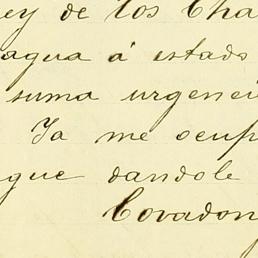 ey de los Cha
agua á estado
suma urgenci
Ya me ocup
gue dandole
Covadon